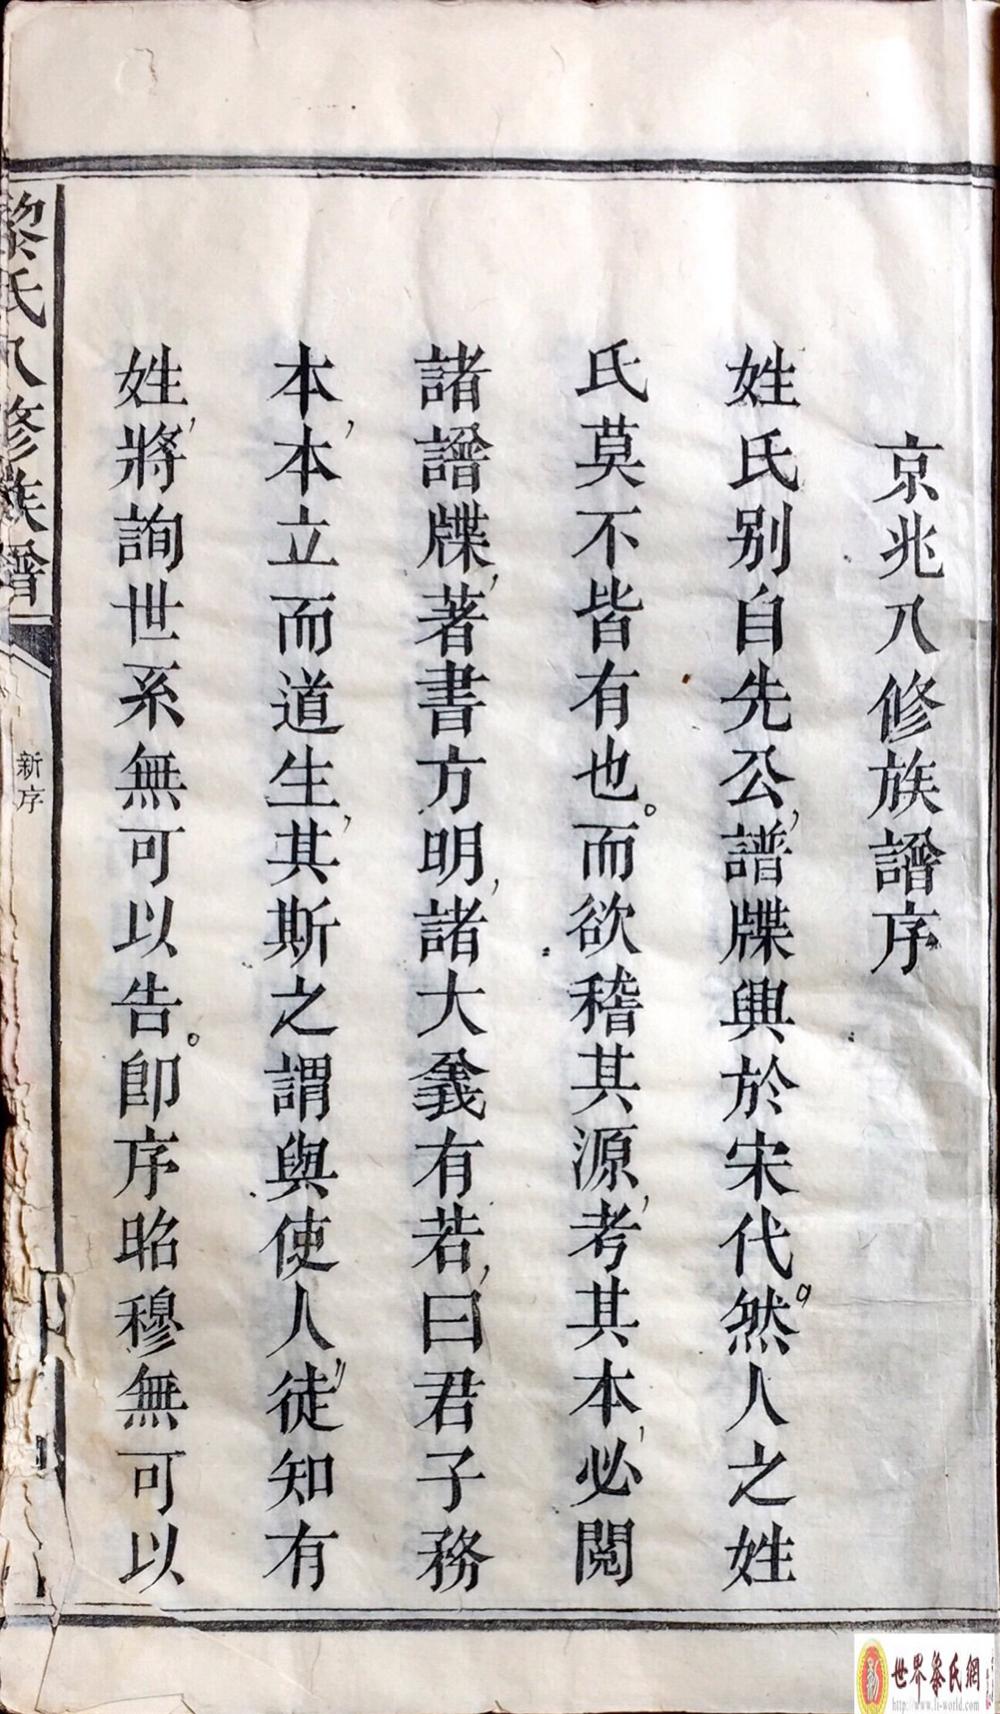 京兆八修族譜序
姓氏別自先公,譜牒興於宋代。然人之姓
氏莫不皆有也。而欲稽其源,考其本,必閱
諸譜牒,著書方明,諸大義有若,曰君子務
本,本立而道生,其斯之謂與使人,徒知有
姓,將詢世系無可以告。即序昭穆無可以
黎氏八修族譜
新序
世界黎氏網
http://www.li-world.com